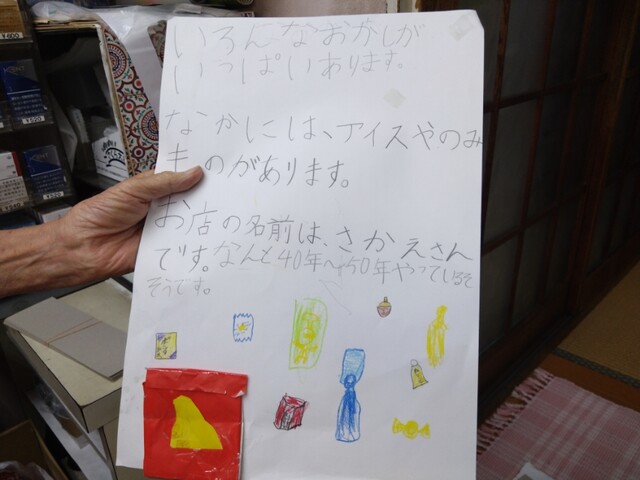 いろんなおかしが
いっぱいあります。
なかには、アイスやのみ
ものがあります。
お店の名前は、さかえさん
です。なんと40年〜50年やっているそ
そうです。
¥600
¥520
¥520